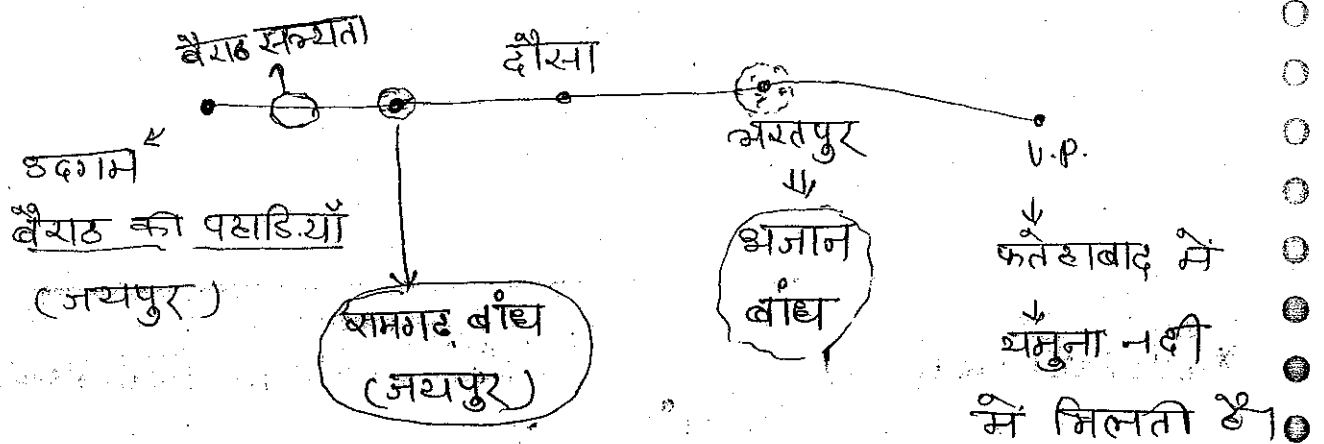 बैराठ सभ्यता
दौसा
उदगम
बैराठ की पहाडि.याँ
(जयपुर)
रामगढ़ बांध
(जयपुर)
भरतपुर
अजान
बांध
U.P.
फतेहाबाद में
यमुना नदी
में मिलती है।